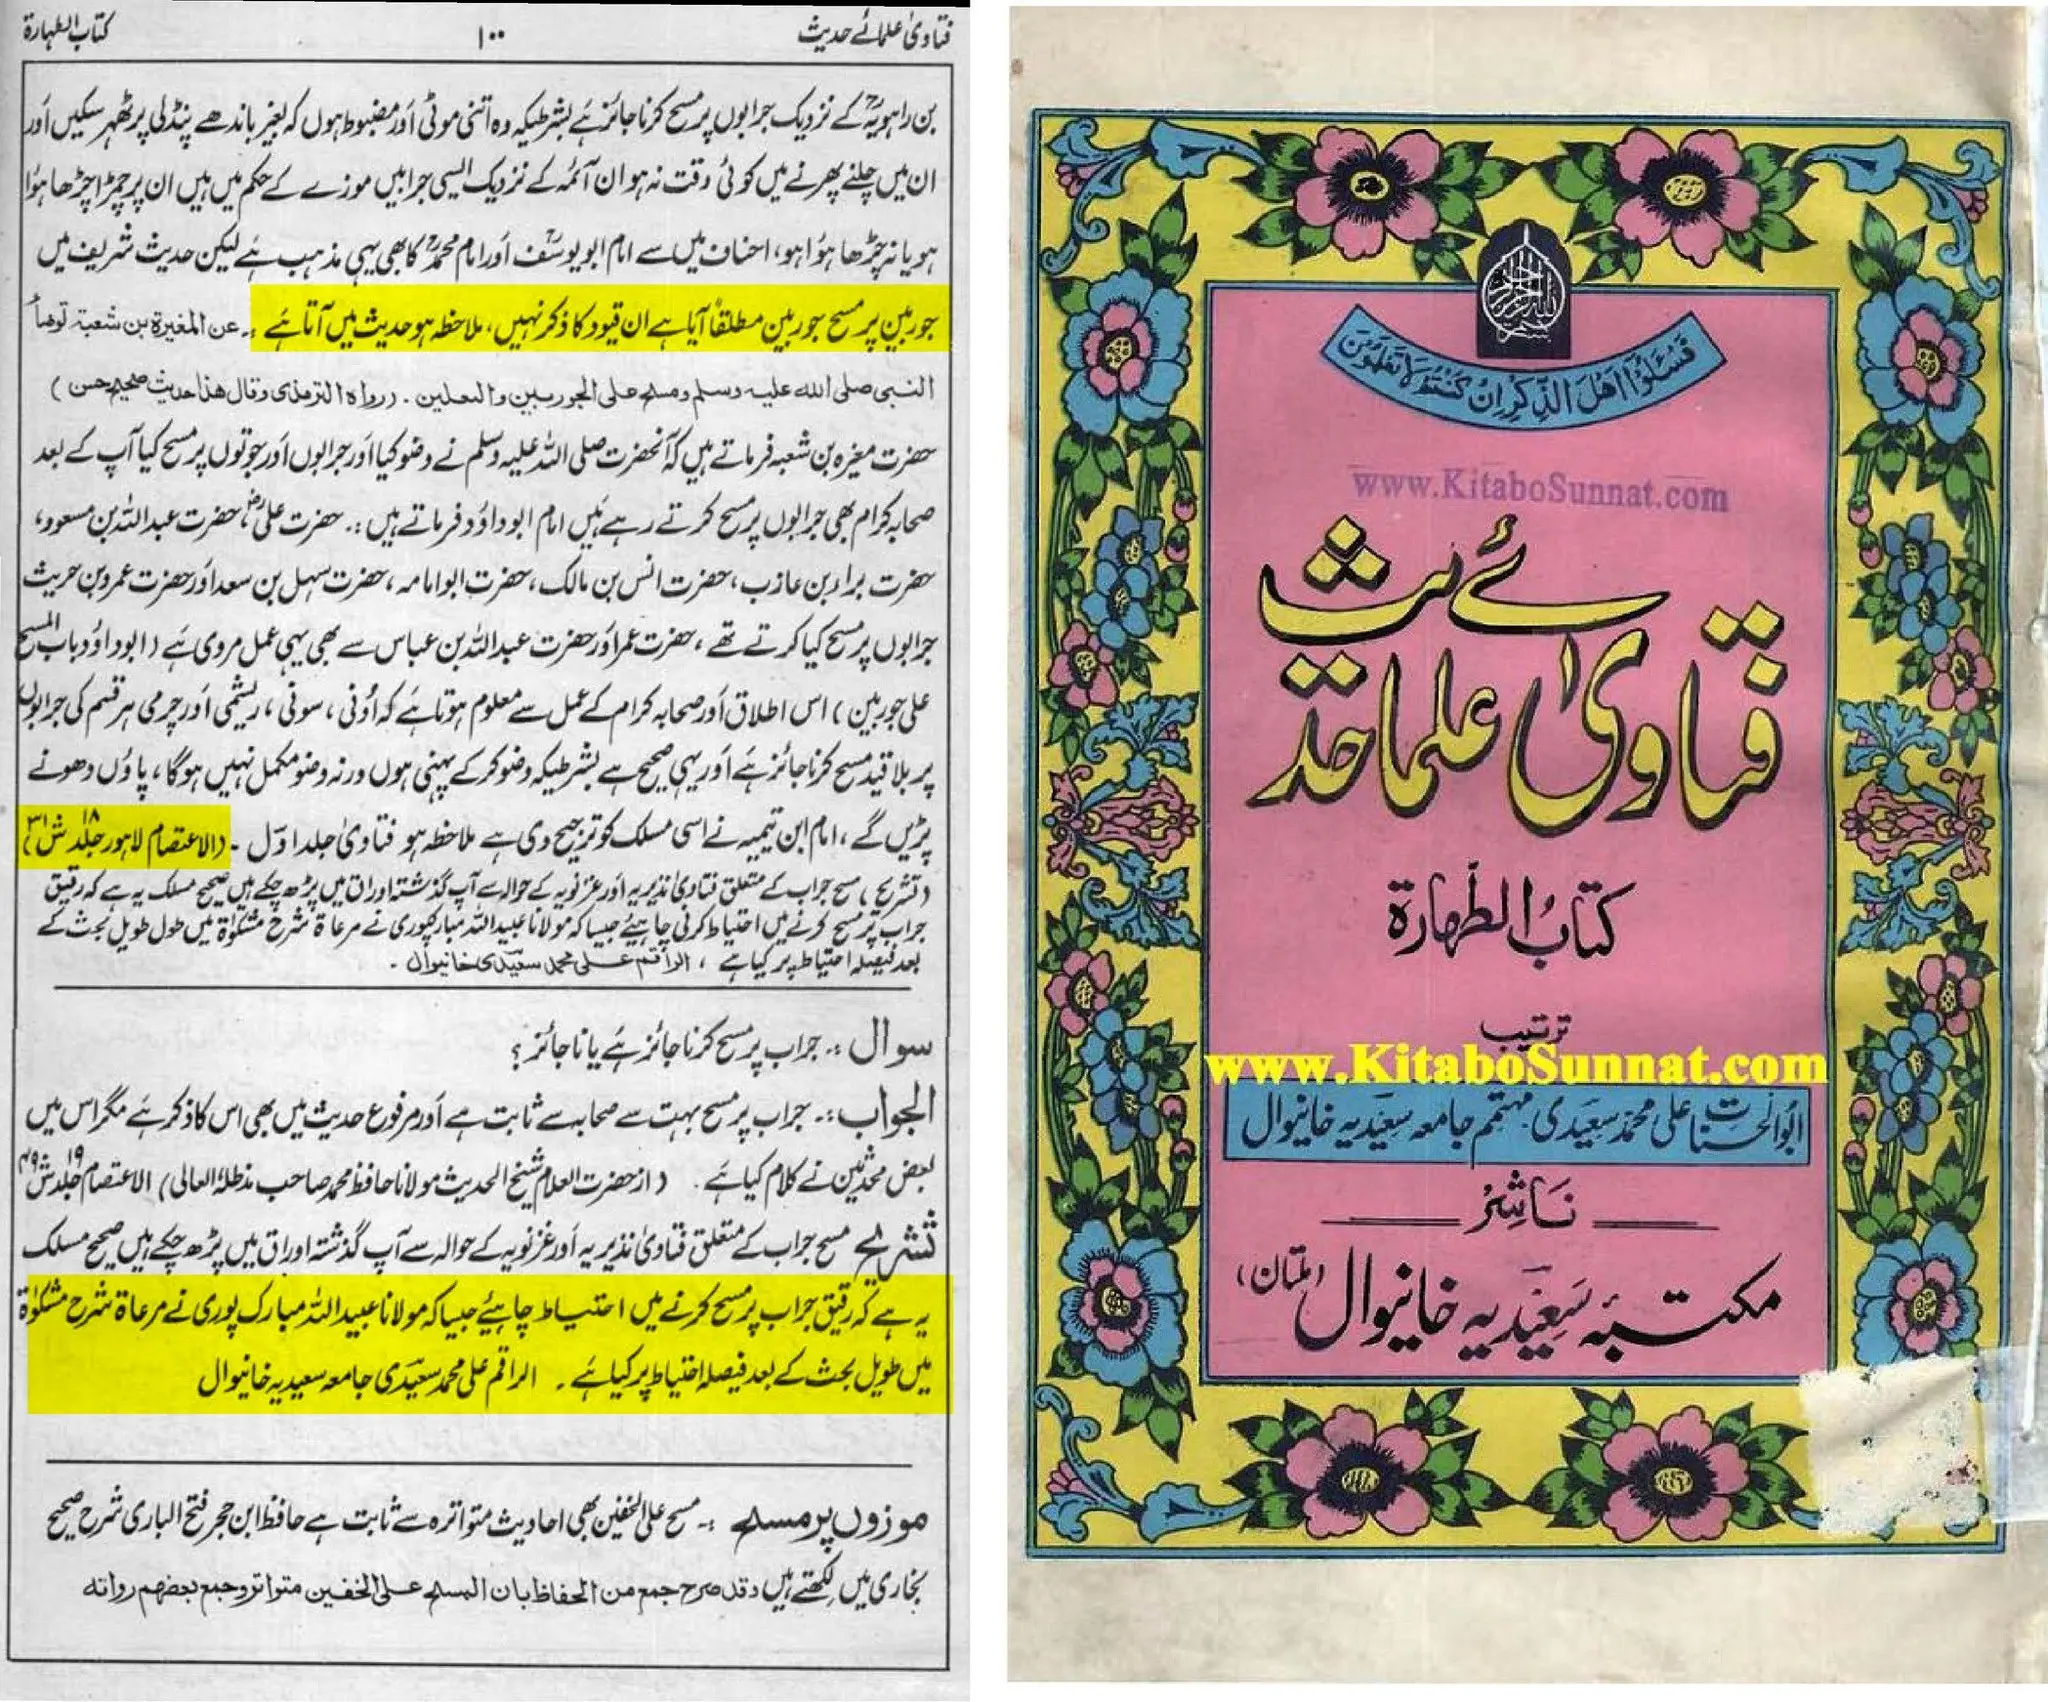 فتاویٰ علمائے حدیث
۱۰۰
کتاب الطہارۃ
بن راہویہؒ کے نزدیک جرابوں پر مسح کرنا جائز ہے بشرطیکہ وہ اتنی موٹی اور مضبوط ہوں کہ بغیر باندھے پنڈلی پر ٹھہر سکیں اور
ان میں چلنے پھرنے میں کوئی دقت نہ ہو ان آئمہ کے نزدیک ایسی جرابیں موزے کے حکم میں ہیں ان پر چمڑا چڑھا ہوا
ہو یا نہ چڑھا ہوا ہو، احناف میں سے امام ابو یوسفؒ اور امام محمدؒ کا بھی یہی مذہب ہے لیکن حدیث شریف میں
جوربین پر مسح جوربین مطلقاً آیا ہے ان قیود کا ذکر نہیں، ملاحظہ ہو حدیث میں آتا ہے :۔ عن المغیرۃ بن شعبۃ توضأ
النبی صلی اللہ علیہ وسلم ومسح علی الجوربین والنعلین ۔ (رواہ الترمذی وقال ھذا حدیث صحیح حسن)
حضرت مغیرہ بن شعبہ فرماتے ہیں کہ آنحضرت صلی اللہ علیہ وسلم نے وضو کیا اور جرابوں اور جوتوں پر مسح کیا آپ کے بعد
صحابہ کرام بھی جرابوں پر مسح کرتے رہے ہیں امام ابو داؤد فرماتے ہیں :۔ حضرت علیؓ حضرت عبداللہ بن مسعود،
حضرت براء بن عازب، حضرت انس بن مالک، حضرت ابوامامہ، حضرت سہل بن سعد اور حضرت عمرو بن حریث
جرابوں پر مسح کیا کرتے تھے، حضرت عمر اور حضرت عبداللہ بن عباس سے بھی یہی عمل مروی ہے (ابو داؤد باب المسح
علی جوربین) اس اطلاق اور صحابہ کرام کے عمل سے معلوم ہوتا ہے کہ اُونی، سوتی، ریشمی اور چرمی ہر قسم کی جرابوں
پر بلا قید مسح کرنا جائز ہے اور یہی صحیح ہے بشرطیکہ وضو کرکے پہنی ہوں ورنہ وضو مکمل نہیں ہوگا، پاؤں دھونے
پڑیں گے، امام ابن تیمیہ نے اسی مسلک کو ترجیح دی ہے ملاحظہ ہو فتاویٰ جلد اوّل ۔ (الاعتصام لاہور جلد ۱۸ ش ۳۱)
(تشریح) مسح جراب کے متعلق فتاویٰ نذیریہ اور غزنویہ کے حوالہ سے آپ گذشتہ اوراق میں پڑھ چکے ہیں صحیح مسلک یہ ہے کہ رقیق
جراب پر مسح کرنے میں احتیاط کرنی چاہیئے جیسا کہ مولانا عبیداللہ مبارکپوری نے مرعاۃ شرح مشکوٰۃ میں طول طویل بحث کے
بعد فیصلہ احتیاط پر کیا ہے، الراقم علی محمد سعیدی خانیوال ۔
سوال :۔ جراب پر مسح کرنا جائز ہے یا ناجائز؟
الجواب :۔ جراب پر مسح بہت سے صحابہ سے ثابت ہے اور مرفوع حدیث میں بھی اس کا ذکر ہے مگر اس میں
بعض محدثین نے کلام کیا ہے ۔ (از حضرت العلام شیخ الحدیث مولانا حافظ محمد صاحب مدظلہ العالی) الاعتصام جلد ۱۹ ش
تشریح مسح جراب کے متعلق فتاویٰ نذیریہ اور غزنویہ کے حوالہ سے آپ گذشتہ اوراق میں پڑھ چکے ہیں صحیح مسلک
یہ ہے کہ رقیق جراب پر مسح کرنے میں احتیاط چاہیئے جیسا کہ مولانا عبیداللہ مبارک پوری نے مرعاۃ شرح مشکوٰۃ
میں طویل بحث کے بعد فیصلہ احتیاط پر کیا ہے ۔ الراقم علی محمد سعیدی جامعہ سعیدیہ خانیوال
موزوں پر مسح :۔ مسح علی الخفین بھی احادیث متواترہ سے ثابت ہے حافظ ابن حجر فتح الباری شرح صحیح
بخاری میں لکھتے ہیں وقد صرح جمع من الحفاظ بان المسح علی الخفین متواتر وجمع بعضھم رواتہ
فَسْـَٔلُوْا اَهْلَ الذِّكْرِ اِنْ كُنْتُمْ لَا تَعْلَمُوْنَ
www.KitaboSunnat.com
فتاویٰ علمائے حدیث
کتابُ الطہارۃ
ترتیب
www.KitaboSunnat.com
ابوالحسنات علی محمد سعیدی مہتمم جامعہ سعیدیہ خانیوال
ناشر
مکتبہ سعیدیہ خانیوال (ملتان)